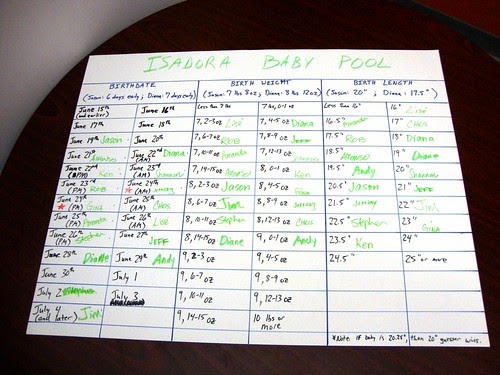 ISADORA BABY POOL
BIRTHDATE BIRTH WEIGHT BIRTH LENGTH
(Jason: 6 days early; Diana: 7 days early) (Jason: 7 lbs 8 oz; Diana: 8 lbs 12 oz) (Jason: 20"; Diana: 17.5")
June 15th (and earlier) June 16th Less than 7 lbs 7 lbs, 0-1 oz Less than 16" 16" Lisé
June 17th June 18th 7, 2-3 oz Lisé 7, 4-5 oz Diana 16.5" 17" Chris
June 19th Jason June 20th 7, 6-7 oz Rob 7, 8-9 oz 17.5" Rob 18" Diana
June 21st June 22nd (AM) Diana 7, 10-11 oz Amanda 7, 12-13 oz 18.5" Alonso 19" Diane
June 22nd (PM) Ken June 23rd (AM) 7, 14-15 oz Alonso 8, 0-1 oz Ken 19.5" Andy 20" Shannon
June 23rd (PM) Rob June 24th (AM) Jeremy 8, 2-3 oz Jason 8, 4-5 oz 20.5" Jason 21" Jeff
June 24th (PM) Gina June 25th (AM) Chris 8, 6-7 oz Jim 8, 8-9 oz Jeremy 21.5" Jeremy 22" Jim
June 25th (PM) Amanda June 26th (AM) Lisé 8, 10-11 oz Stephen 8, 12-13 oz Chris 22.5" Stephen 23" Gina
June 26th (PM) Stephen June 27th Jeff 8, 14-15 oz Diane 9, 0-1 oz Andy 23.5" Ken 24"
June 28th Diane June 29th Andy 9, 2-3 oz 9, 4-5 oz 24.5" 25" or more
June 30th July 1 9, 6-7 oz 9, 8-9 oz
July 2 July 3 9, 10-11 oz 9, 12-13 oz
July 4 (and later) Jim 9, 14-15 oz 10 lbs or more
*Note: if baby is 20.25", then 20" guesser wins.